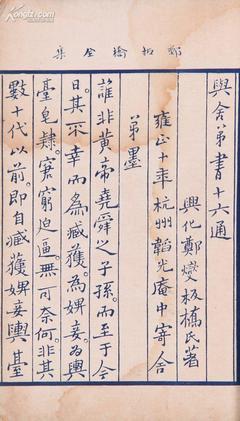 鄭板橋全集
與舍弟書十六通
興化鄭燮板橋氏著
雍正十年杭州韜光庵中寄舍
弟墨
誰非黃帝堯舜之子孫而至于今
日其不幸而為臧獲為婢妾為輿
臺皂隸窮窮迫逼無可奈何非其
數十代以前即自臧獲婢妾輿臺